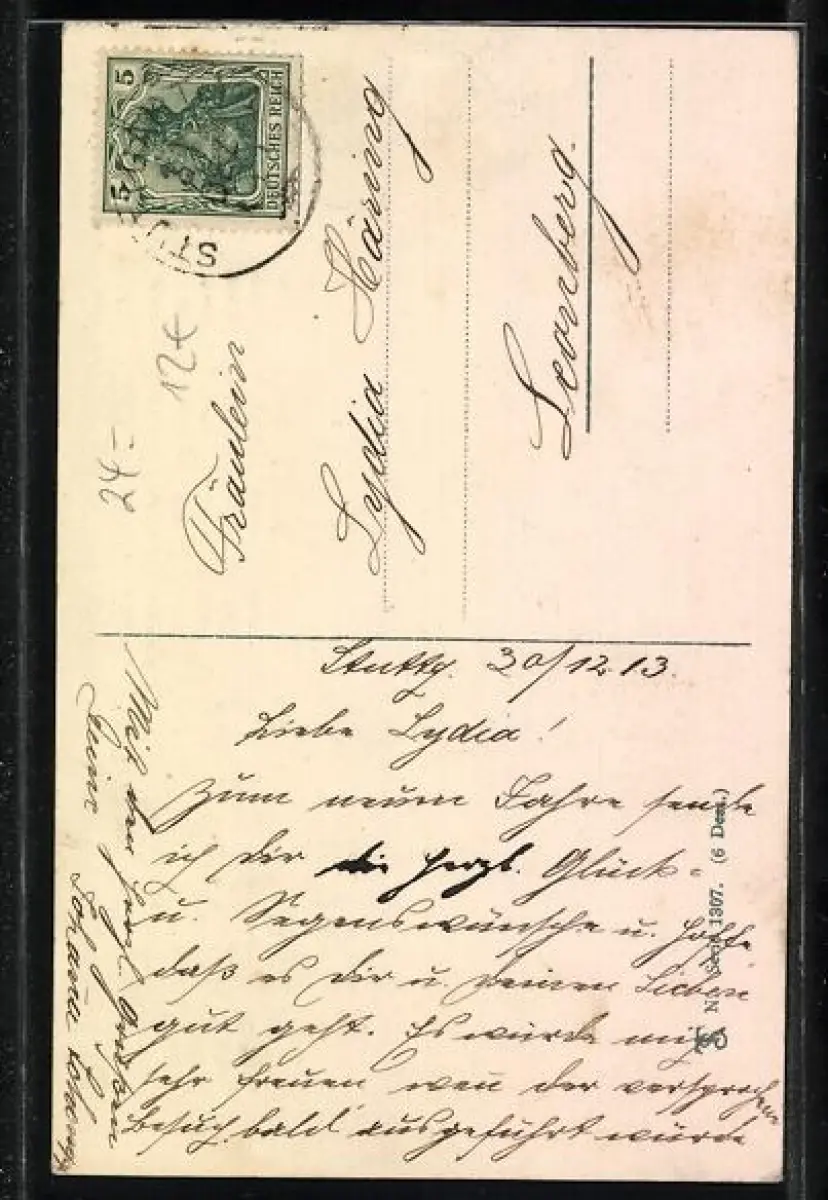 5 5
DEUTSCHES REICH
12€
24-
Fräulein
Lydia Häring
Leonberg.
Stuttg. 30/12.13.
Liebe Lydia!
Zum neuen Jahre sende
ich dir die herzl. Glück-
u. Segenswünsche u. hoffe
daß es dir u. deinen Lieben
gut geht. Es würde mich
sehr freuen wen der versprochene
Besuch bald ausgeführt würde
Mit herzl. Grüßen
Deine
Johanna
Serie 1307. (6 Dess.)